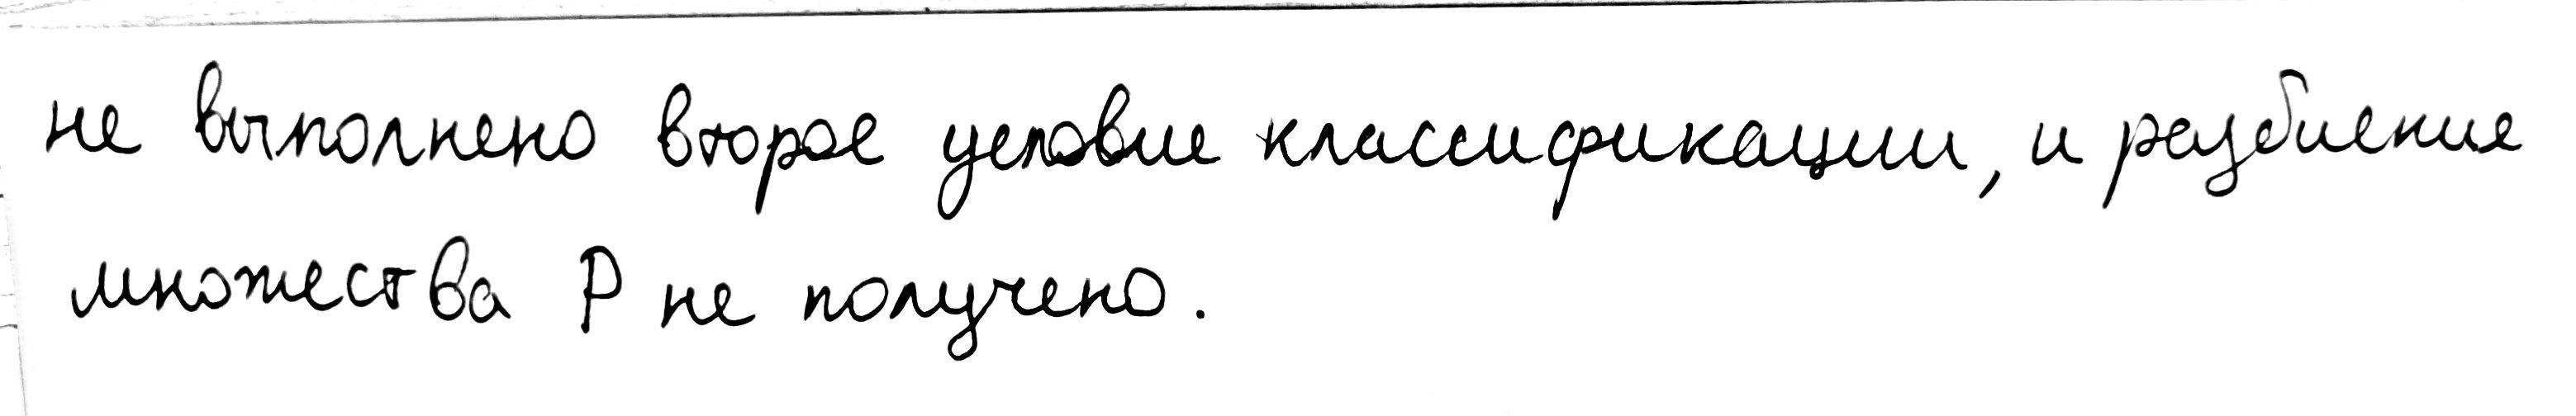 не выполнено второе условие классификации, и разбиение
множества P не получено.